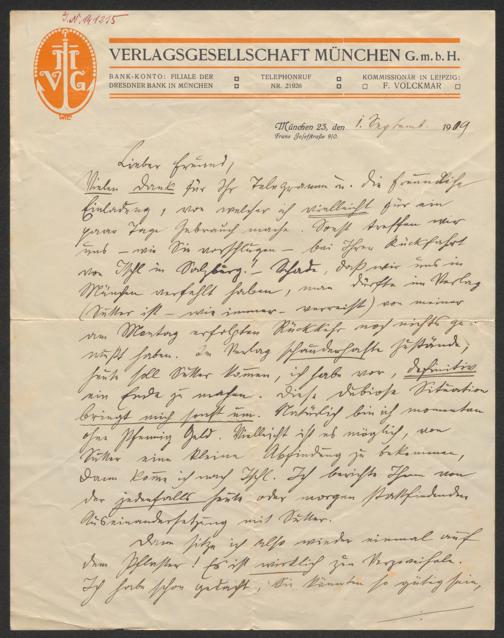 J.N. 191215
VERLAGSGESELLSCHAFT MÜNCHEN G.m.b.H.
BANK-KONTO: FILIALE DER DRESDNER BANK IN MÜNCHEN
TELEPHONRUF NR. 21926
KOMMISSIONÄR IN LEIPZIG: F. VOLCKMAR
M V G
München 23, den 1. Septemb. 1919
Franz Josefstraße 9/0.
Lieber Freund,
Vielen Dank für Ihr Telegramm u. die freundliche
Einladung, von welcher ich vielleicht für ein
paar Tage Gebrauch mache. Sonst treffen wir
uns – wie Sie vorschlugen – bei Ihrer Rückfahrt
von Ischl in Salzburg! – Schade, daß wir uns in
München verfehlt haben, man dürfte im Verlag
(Sutter ist – wie immer – verreist) von meiner
am Montag erfolgten Rückkehr noch nichts ge-
wußt haben. Im Verlag schauderhafte Zustände,
heute soll Sutter kommen, ich habe vor, definitiv
ein Ende zu machen. Diese dubiose Situation
bringt mich sonst um. Natürlich bin ich momentan
ohne Pfennig Geld. Vielleicht ist es möglich, von
Sutter eine kleine Abfindung zu bekommen,
dann komme ich nach Ischl. Ich berichte Ihnen von
der jedenfalls heute oder morgen stattfindenden
Auseinandersetzung mit Sutter.
Dann sitze ich also wieder einmal auf
dem Pflaster! Es ist wirklich zum Verzweifeln.
Ich habe schon gedacht, Sie könnten so gütig sein,